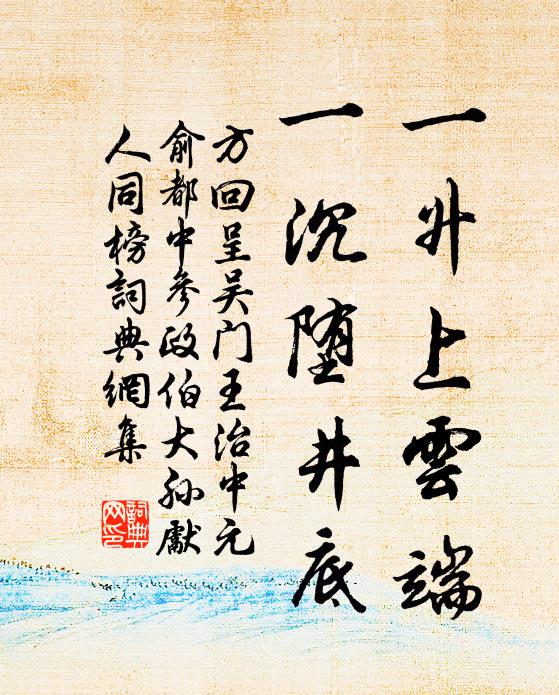 一升上雲端
一沉墮井底
方回呈吴门王治中元
俞都中參政伯大孙獻
人同榜詞典網集
詞典
网印